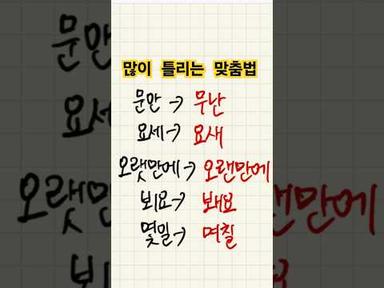 많이 틀리는 맞춤법
문안 → 무난
요세 → 요새
오랫만에 → 오랜만에
뵈요 → 봬요
몇일 → 며칠